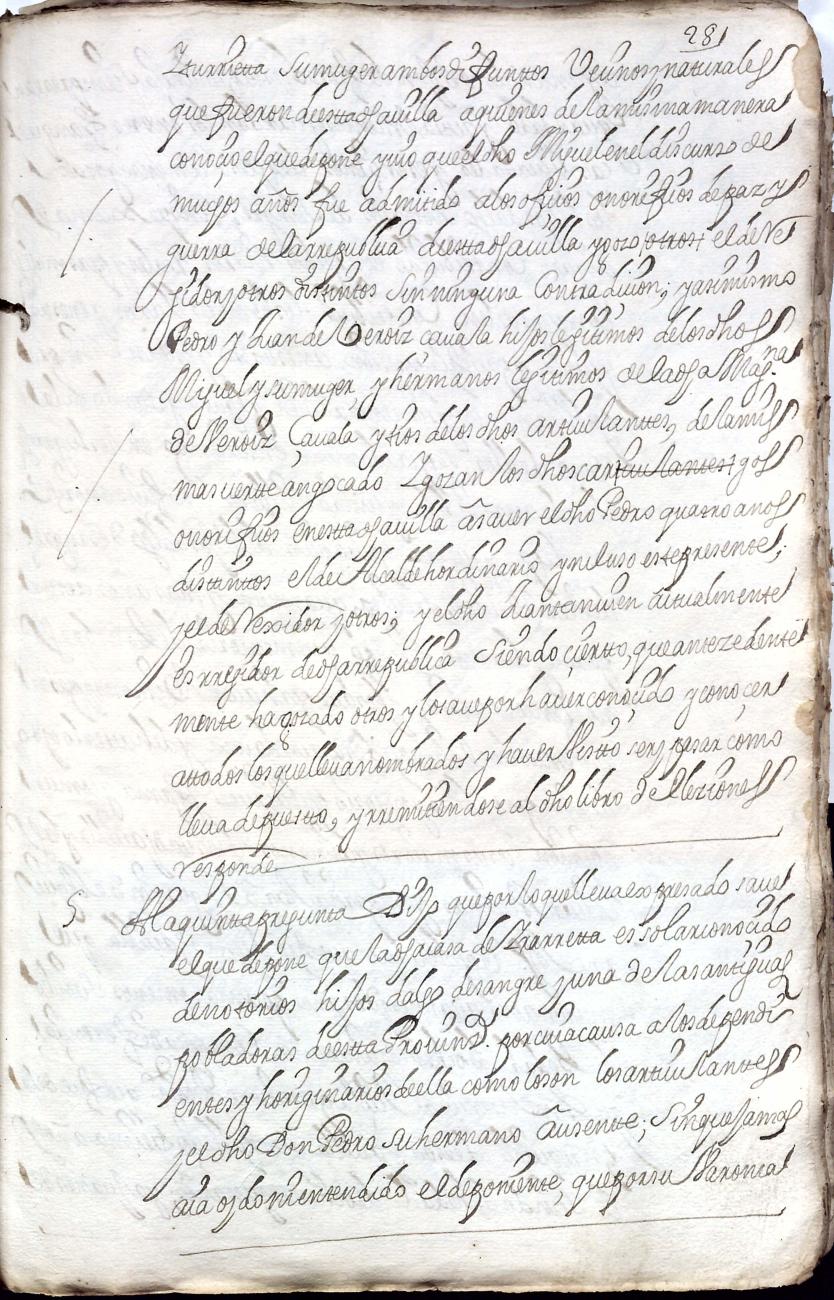 281
Yturrietta su muger ambos difuntos Veçinos y naturales
que fueron de estta dha villa a quienes de la misma manera
conoçio el que depone y vio que el dho Miguel en el discurso de
muchos años fue admitido a los ofiçios onorifiços de paz y
guerra de la rrepublica de estta dha villa y gozo otros el de Re
gidor y otros distintos sin ninguna Contradiçion; y assimismo
Pedro y Juan de Veroiz çavala hijos legitimos de los dhos
Miguel y su muger, y hermanos legitimos de la dha Magna
de Veroiz Çavala y tios de los dhos articulantes, de la mis
ma suertte an goçado Y gozan los dhos car articulantes gos
onorifiços en estta dha villa a saver el dho Pedro quatro años
distinttos el de Alcalde hordinario yncluso este presente;
y el de Rexidor y otros; y el dho Juan tanvien actualmente
es rregidor de dha rrepublica Siendo çiertto, que antezedente
mente ha gozado otros y lo save por haver conoçido y conoçer
a ttodos los que lleva nombrados y haver Visto ser y pasar como
lleva depuestto, y rremitiendose al dho libro de Elecziones
responde
5 A la quintta pregunta Dijo que por lo que lleva expresado save
el que depone que la dha casa de Yzarretta es solar conoçido
de notorios hijos dalgo de sangre y una de las antiguas
pobladoras de estta Provinçia por cuia causa a los dependi
entes y horiginarios de ella como lo son los articulanttes
y el dho Don Pedro su hermano ausentte; sin que jamas
aia oydo ni entendido el deponente, que por su Varonia